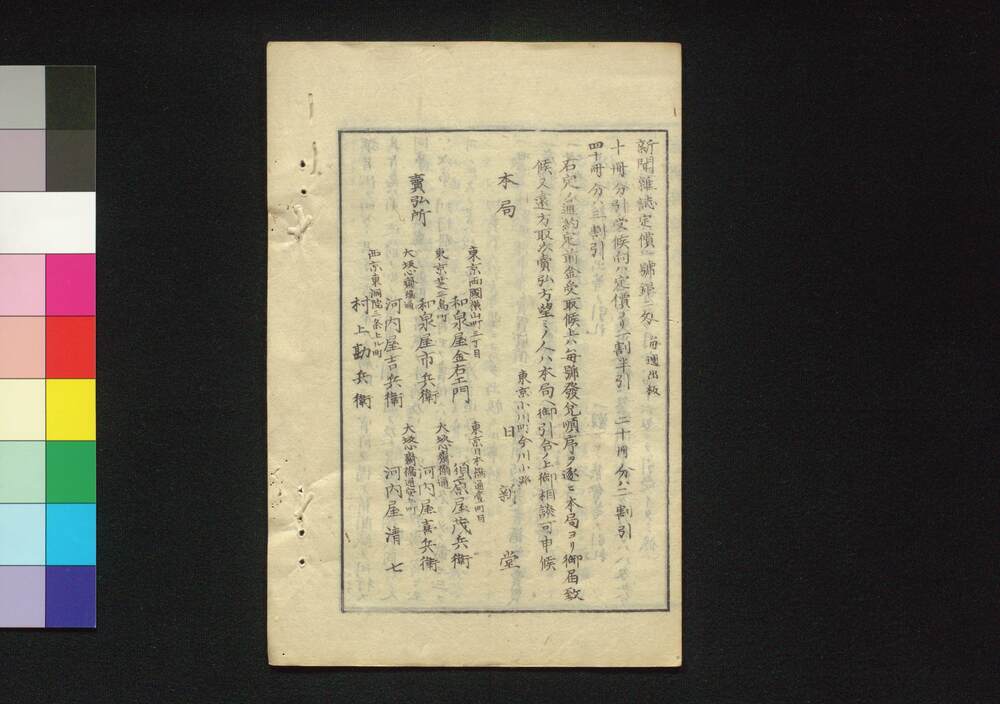 新聞雜誌定價一號銀二匁 毎週出板
十冊分引受候向ハ定價ヨリ一割半引 二十冊分ハ二割引
四十冊分ハ三割引
右定メ通約定前金受取候上ハ毎號發兌順序ヲ逐ヒ本局ヨリ御届致
候又遠方取次賣弘方望ミノ人ハ本局ヘ御引合ノ上御相談可申候
東京小川町今川小路
本局 日新堂
賣弘所
東京両國横山町三丁目
和泉屋金右エ門
東京日本橋通壹町目
須原屋茂兵衛
東京芝三島町
和泉屋市兵衛
大坂心齋橋通
河内屋真兵衛
大坂心齋橋通
河内屋吉兵衛
大坂心齋橋通安土町
河内屋清七
西京東洞院三条上ル町
村上勘兵衛